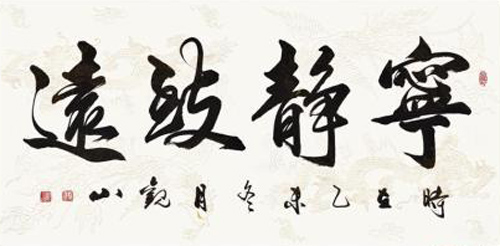 寧静致遠
時在乙未冬月觀山